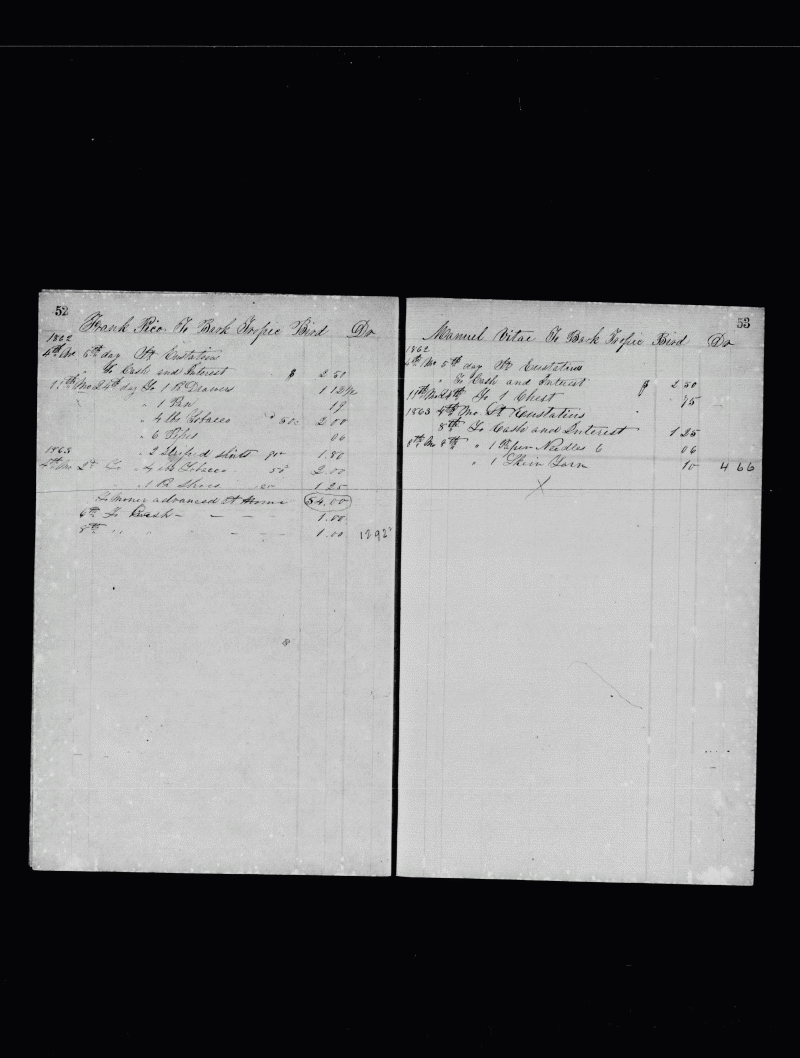 52
Frank Rico To Bark Tropic Bird Dr
1862
4th Mo 5th day St Eustatius
To Cash and Interest $ 2 50
11th Mo 24th day To 1 P Drawers 1 12½
" 1 Pan 19
" 4 lbs Tobacco 50c 2 00
" 6 Pipes 06
1863 " 2 Striped shirts 90 1.80
4th Mo 2d Co " 4 lbs Tobacco 50 2.00
" 1 P Shoes 1.25
To money advanced at Home 54.00
6th To Cash - - - - 1.00
8th " " - - - 1.00
53
Manuel Vitae To Bark Tropic Bird Dr
1862
4th Mo 5th day St Eustatius
" To Cash and Interest $ 2 50
11th Mo 24th To 1 Chest " 75
1863 4th Mo St Eustatius
8th To Cash and Interest 1 25
8th Mo 8th " 1 Paper Needles 6 06
" 1 Skein Yarn 10 4 66
X